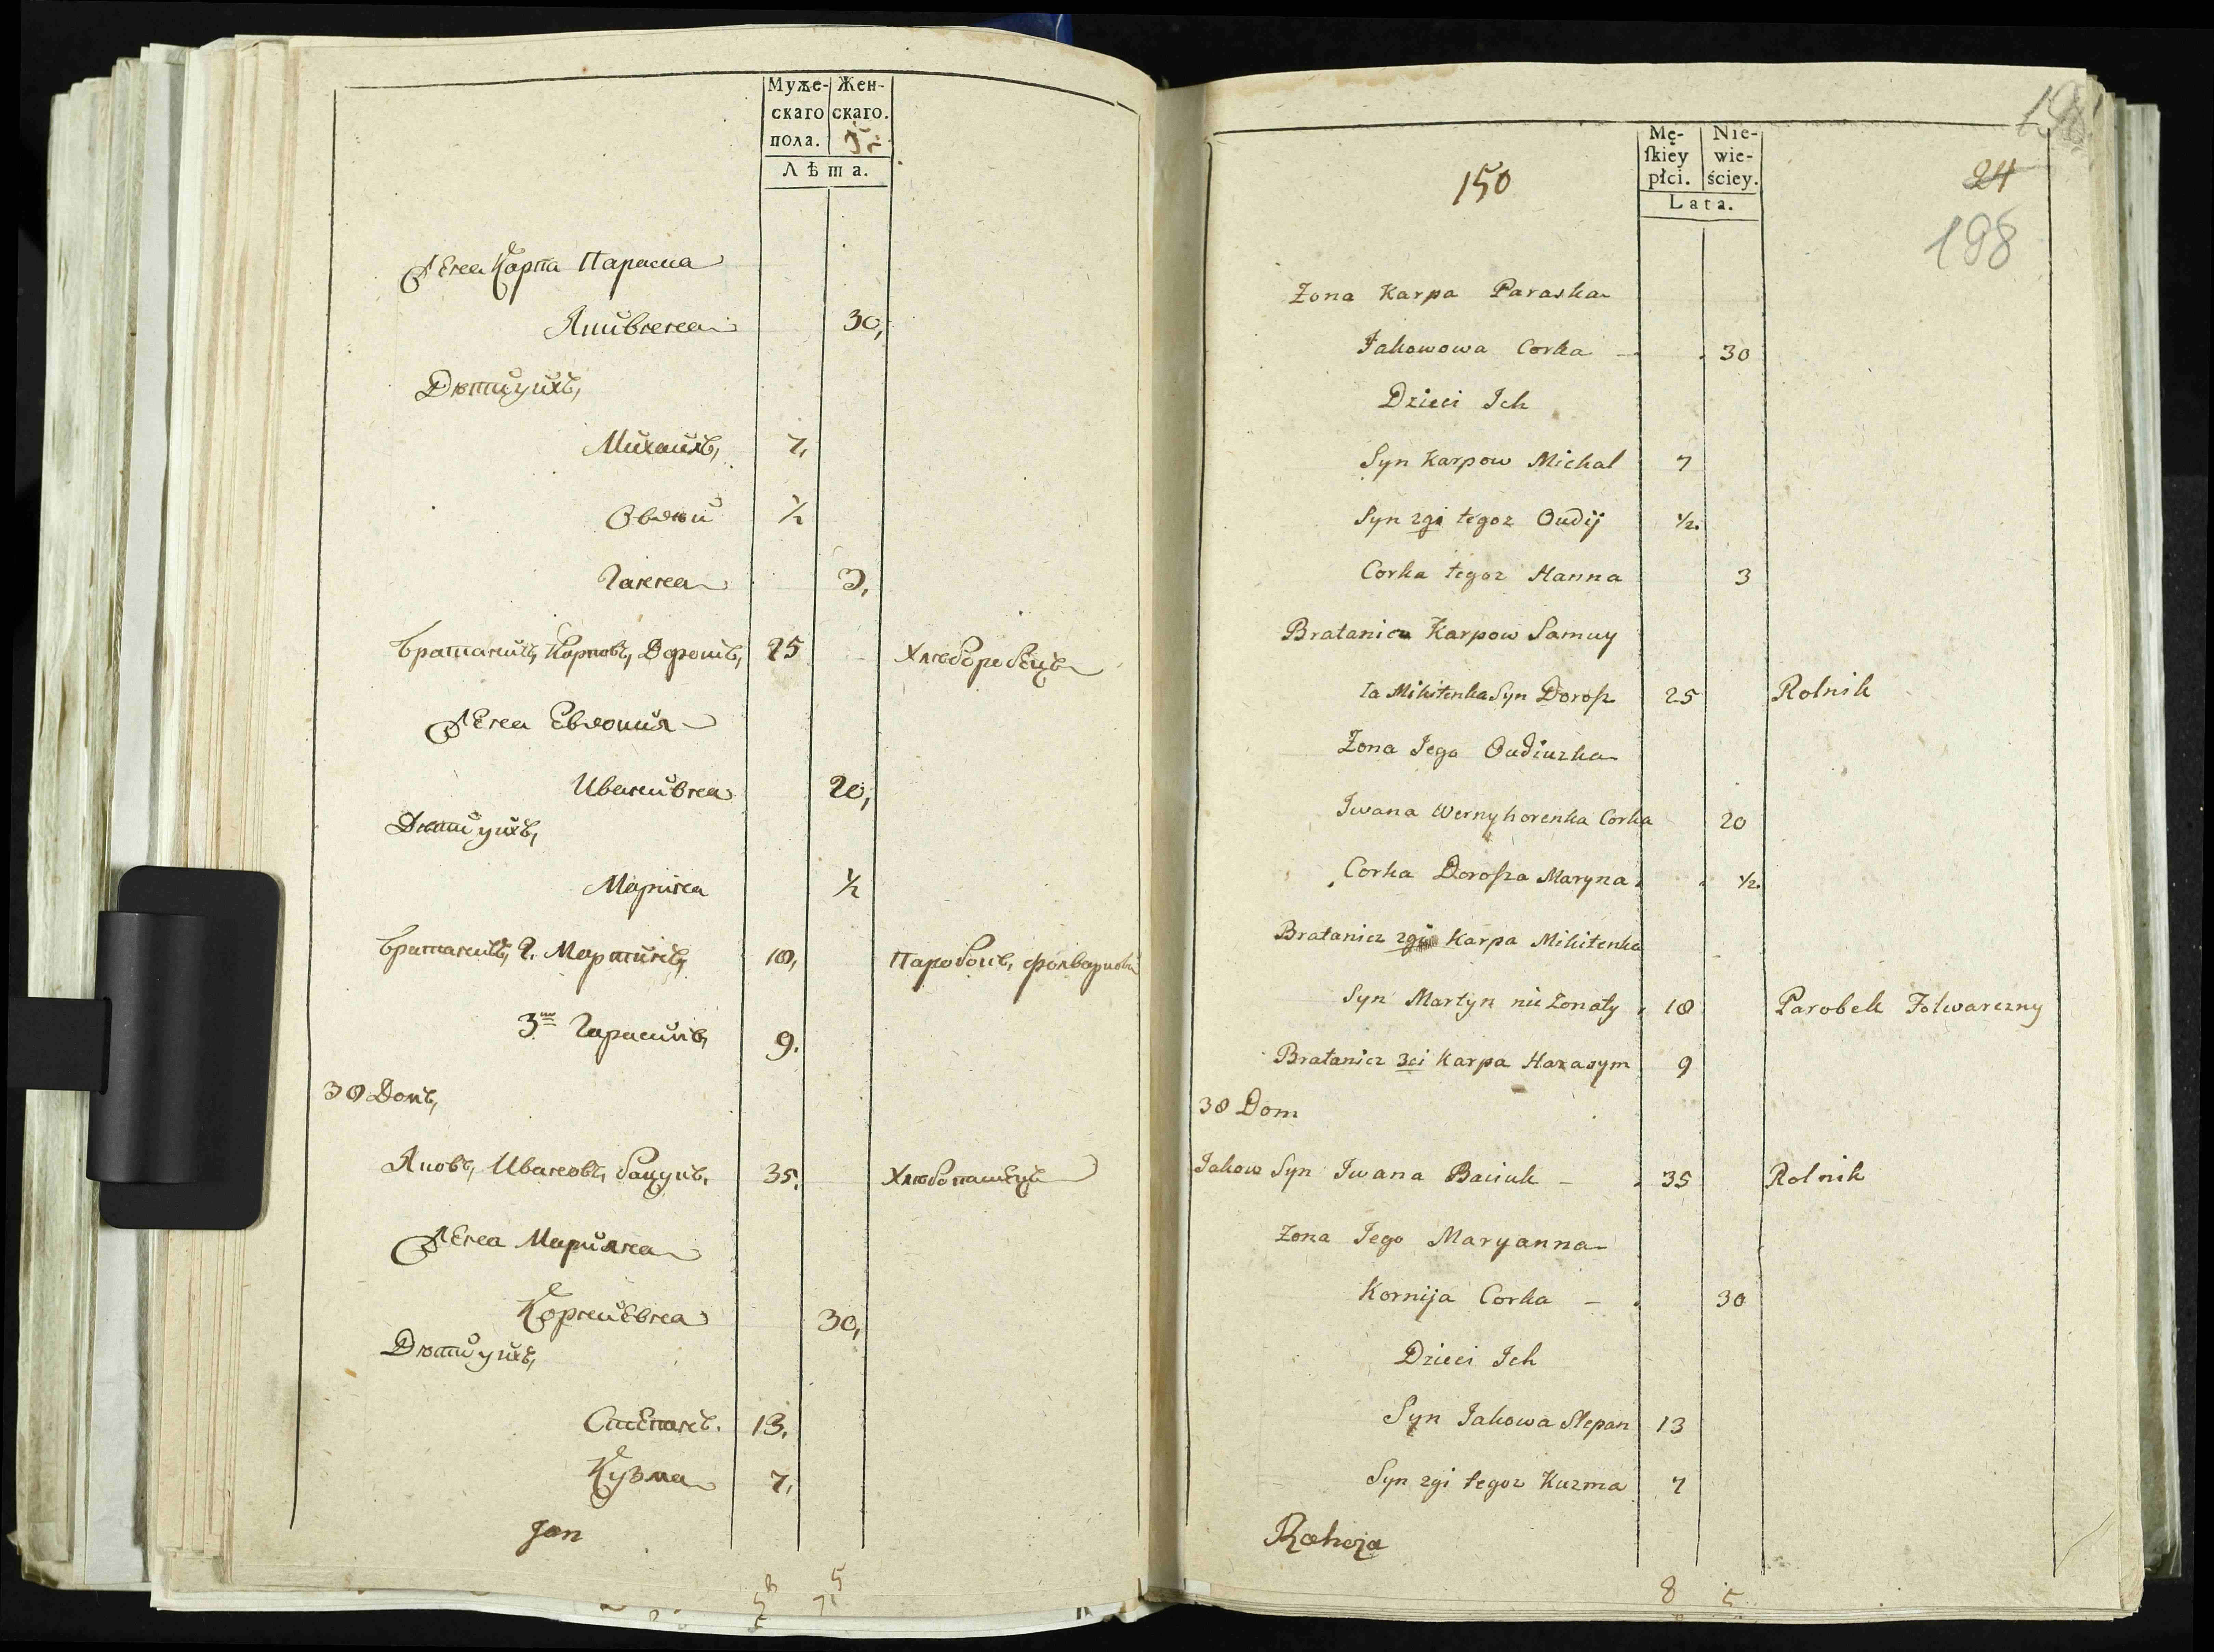 Муже-
скаго
пола.
Жен-
скаго.
Лѣта.
Жена Карпа Параска
Якивнена 30,
Дѣти ихъ,
Михаилъ, 7,
Овдѣй ½
Ганна 3,
Братаничъ, Карповъ, Дорошъ, 25 Хлѣборобецъ
Жена Евдокия
Иванивна 20,
Дѣти ихъ,
Марина ½
Братаничъ, 2. Мартинъ, 18, Паробокъ, фолварковий
3й Гарасимъ, 9.
38 Домъ,
Яковъ, Ивановъ, Бацукъ, 35. Хлѣбопашецъ
Жена Марияна
Корнѣевна 30,
Дѣти ихъ,
Степанъ. 13.
Кузма 7,
Jan
8 5
150
Mę-
ſkiey
płci.
Nie-
wie-
ściey.
Lata.
24
198
Zona Karpa Paraska
Jakowowa Corka – 30
Dzieci Ich
Syn Karpow Michal 7
Syn 2gi tegoz Oudij ½.
Corka tegoz Hanna 3
Bratanicz Karpow Samuy
la Mikitenka Syn Dorosz 25 Rolnik
Zona Jego Oudiuzka
Iwana Wernyhorenka Corka 20
Corka Dorosza Maryna ½.
Bratanicz 2gi Karpa Mikitenka
Syn Martyn nie Zonaty 18 Parobek Folwarczny
Bratanicz 3ci Karpa Harasym 9
38 Dom
Jakow Syn Iwana Baciuk – 35 Rolnik
Zona Jego Maryanna
Kornija Corka – 30
Dzieci Ich
Syn Jakowa Stepan 13
Syn 2gi tegoz Kuzma 7
Rahoza
8 5